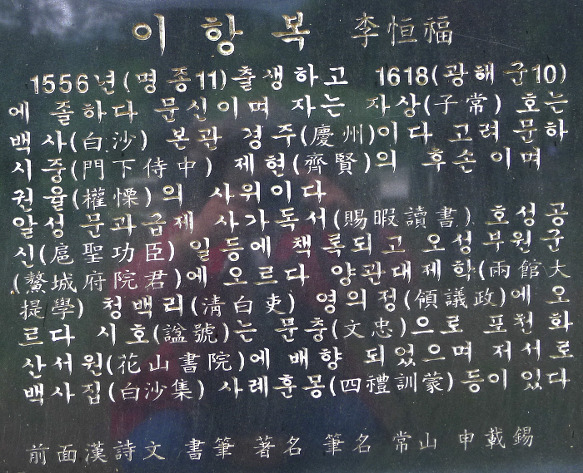 이항복 李恒福
1556년(명종11)출생하고 1618(광해군10)
에 졸하다 문신이며 자는 자상(子常) 호는
백사(白沙) 본관 경주(慶州)이다 고려 문하
시중(門下侍中) 제현(齊賢)의 후손이며
권율(權慄)의 사위이다
알성문과급제 사가독서(賜暇讀書) 호성공
신(扈聖功臣) 일등에 책록되고 오성부원군
(鰲城府院君)에 오르다 양관대제학(兩館大
提學) 청백리(清白吏) 영의정(領議政)에 오
르다 시호(諡號)는 문충(文忠)으로 포천화
산서원(花山書院)에 배향 되었으며 저서로
백사집(白沙集) 사례훈몽(四禮訓蒙)등이 있다
前面漢詩文 書筆 著名 筆名 常山 申載錫